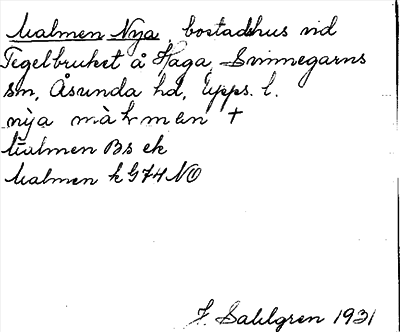 Malmen, Nya, bostadshus vid
Tegelbruket å Haga, Svinnegarns
sn, Åsunda hd, Upps. l.
nỳa màłmen +
Malmen Bs ek
Malmen k G74 NO
J. Sahlgren 1931